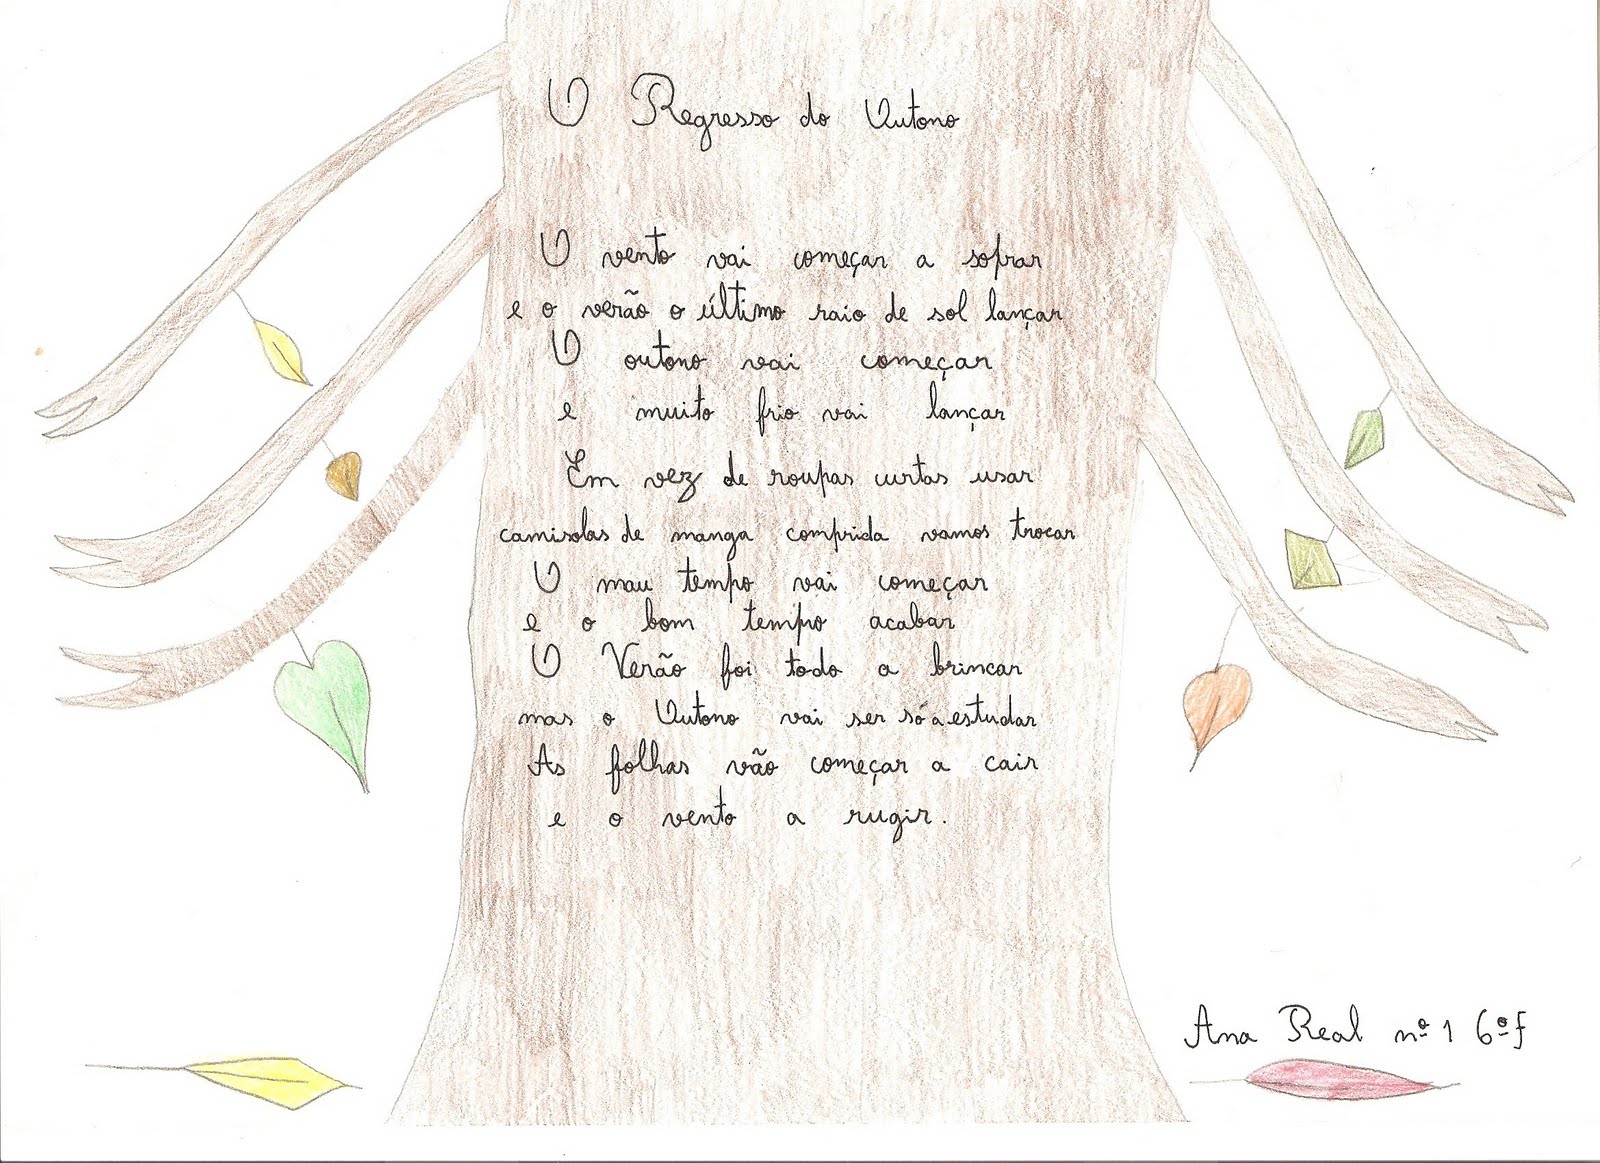 O Regresso do Outono
O vento vai começar a soprar
e o verão o último raio de sol lançar
O outono vai começar
e muito frio vai lançar
Em vez de roupas curtas usar
camisolas de manga comprida vamos trocar
O mau tempo vai começar
e o bom tempo acabar
O Verão foi todo a brincar
mas o Outono vai ser só a estudar
As folhas vão começar a cair
e o vento a rugir.
Ana Real nº 1 6º f